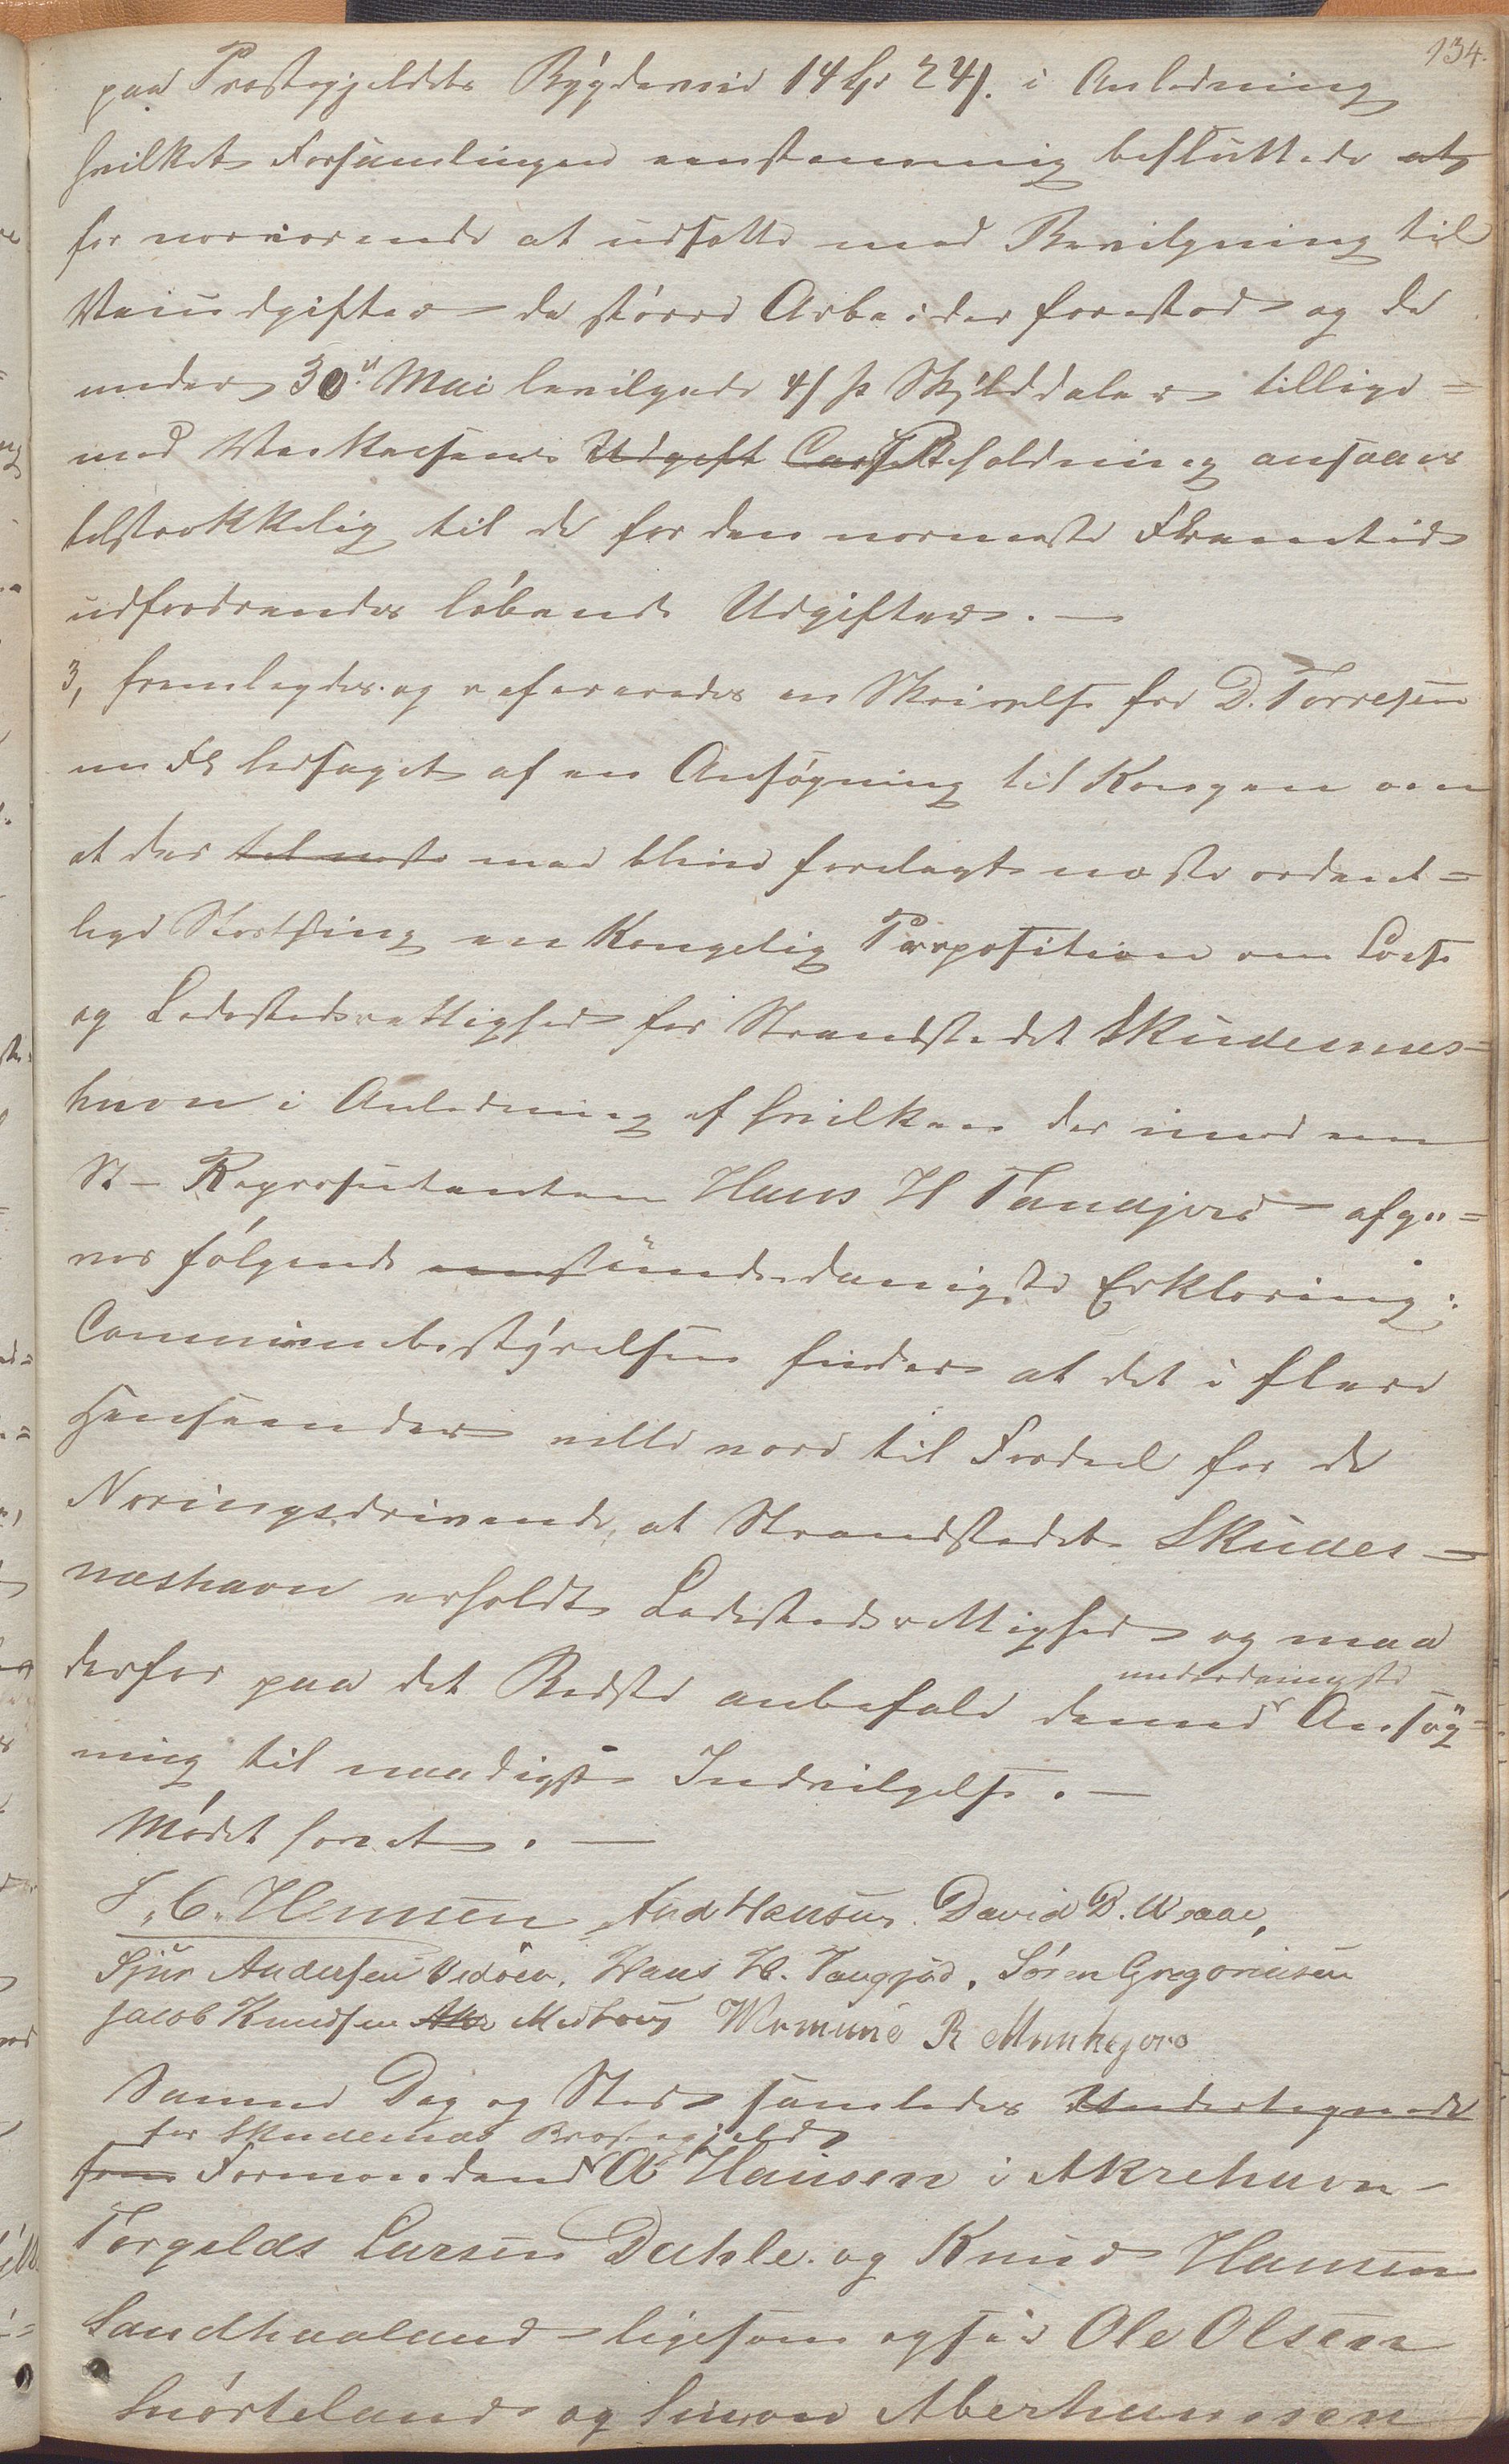 134.
paa Præstegjeldets Bygdevei 14 Spd 24 s. i Anledning
hvilket Forsamlingen eenstemmig besluttede at
for nærværende at udsætte med Bevilgning til
Veiudgifter da større Arbeider forestod og de
under 30te Mai bevilgede 4 s pr Skylddaler tillige=
med Veikassens Udgift Casse Beholdning ansaaes
tilstrækkelig til de for den nærmeste Fremtid
udfordrende løbende Udgifter. —
3, fremlagdes og refereredes en Skrivelse fra D. Torresen
m Fl ledsaget af en Ansøgning til Kongen om
at der til næste maa blive forelagt næste ordent=
lige Storthing en Kongelig Proposition om
og Ladestedsrettighed for Strandstedet Skudesnæs=
havn i Anledning af hvilken der imod een
St– Repræsentanten Hans H Tandjord afga=
ves følgende underdanigste Erklæring:
Communebestyrelsen finder at det i flere
Henseender vilde være til Fordeel for de
Næringsdrivende, at Strandstedet Skudes=
næshavn erholdt Ladestedsrettighed og maa
derfor paa det Bedste anbefale denne underdanigste Ansøg=
ning til naadigst Indvilgelse. —
Mødet hævet. —
F. C. Hennen And Hansen. David D.
Sjur Andersen Vedøen, Hans H. Tangjord. Søren Gregoriusen
Jacob Knudsen Medhoug R Munkejord
Samme Dag og Sted samledes Undertegnede
for Skudesnæs Præstegjeld
som Formændene A Hansen i Akrehavn
Torgilds Larsen Dahle og Knud Hansen
Sandhaaland ligesom ogsaa Ole Olsen
Snørteland og Simon Aberhamsen